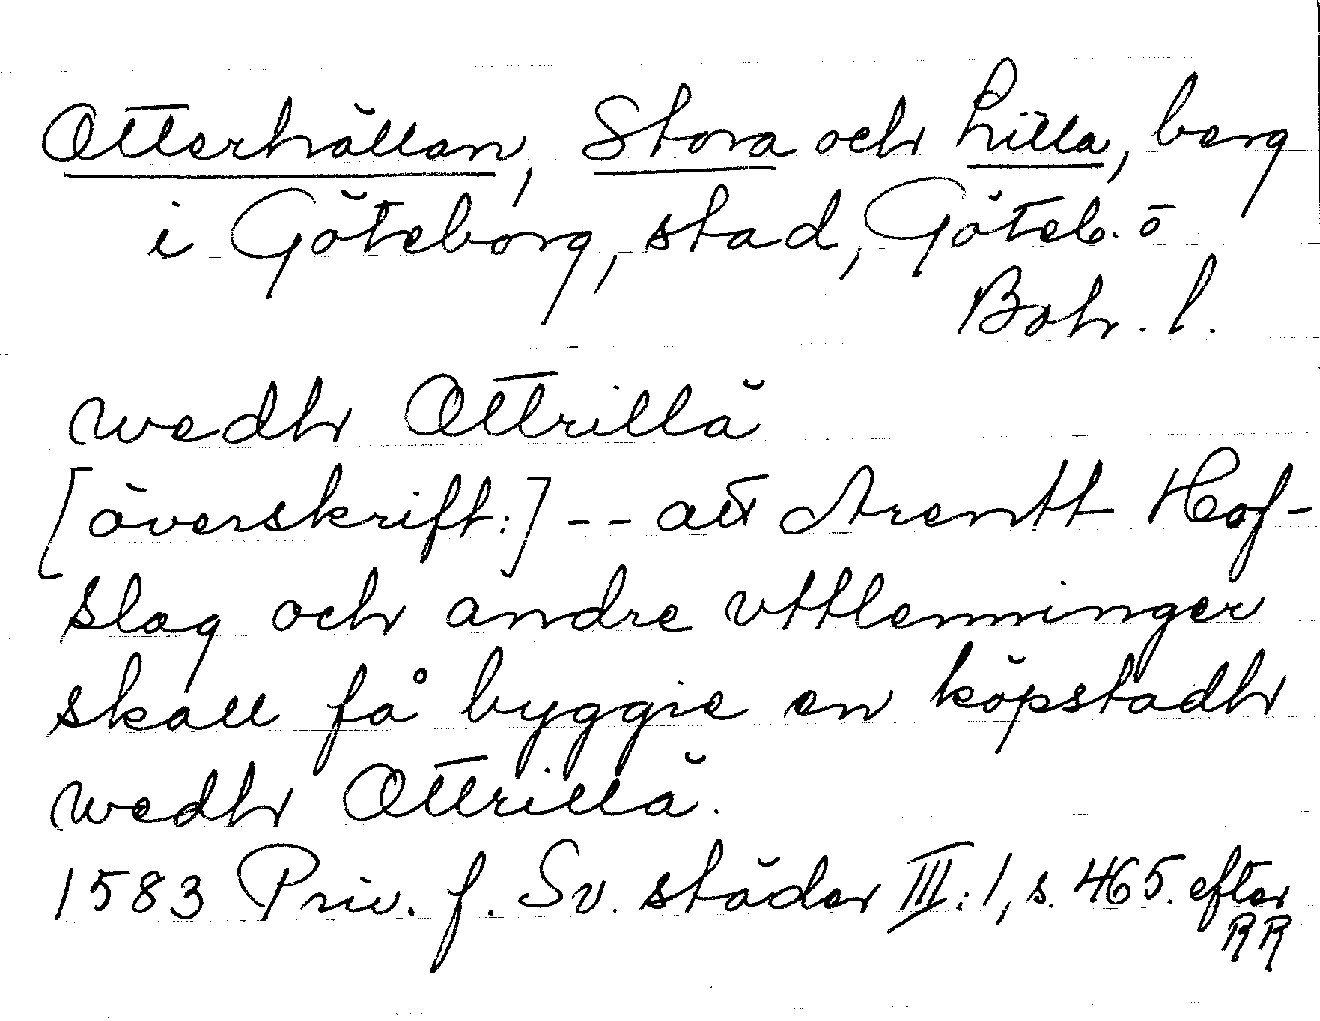 Otterhällan, Stora och Lilla, berg
i Göteborg, stad, Göteb. o
Boh. l.
wedh Ottrillä
[överskrift:] -- att Arentt Hof-
slag och andre vttlenninger
skall få byggie en köpstadh
wedh Ottrillä.
1583 Priv. f. Sv. städer III:1, s. 465. efter
RR